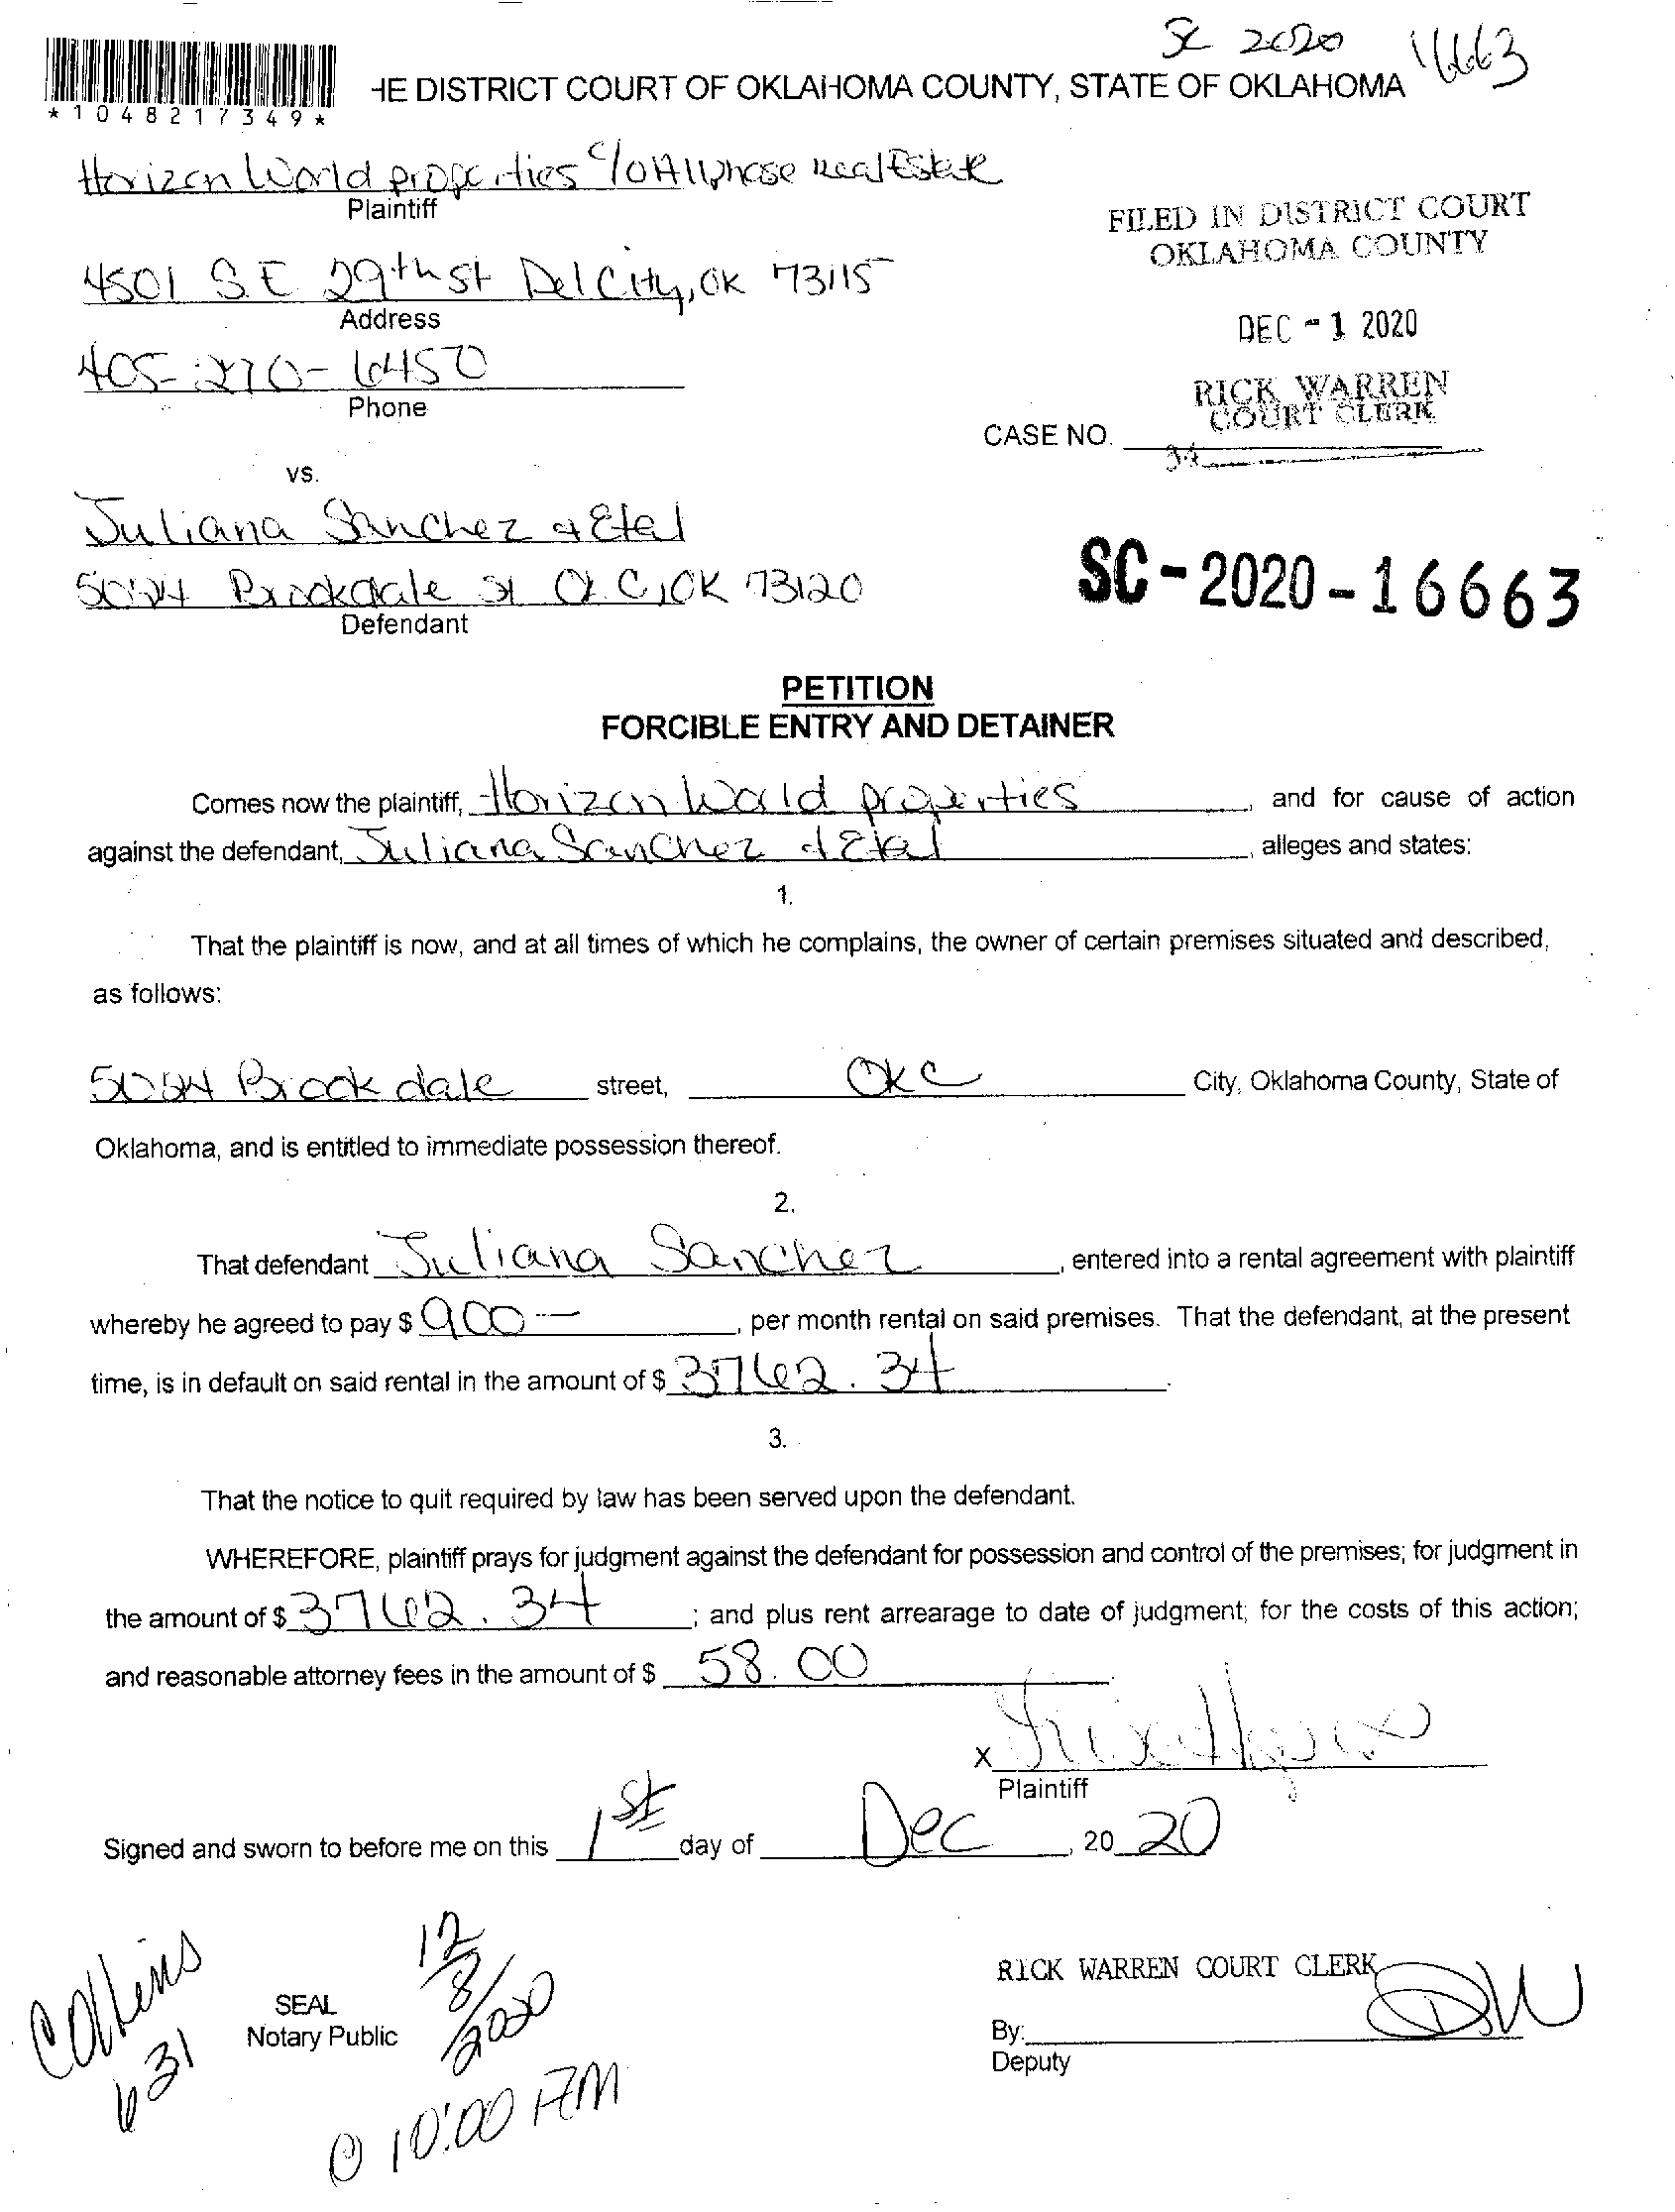 SC 2020 16663
HE DISTRICT COURT OF OKLAHOMA COUNTY, STATE OF OKLAHOMA
*1048217349*
Horizon World properties c/o Allphase Real Estate
Plaintiff
FILED IN DISTRICT COURT
OKLAHOMA COUNTY
4501 S.E 29th st Del City, OK 73115
Address
DEC - 1 2020
405-270-6450
Phone
RICK WARREN
COURT CLERK
CASE NO.
34
vs.
Juliana Sanchez & Etal
5024 Brookdale st O.K.C, OK 73120
Defendant
SC-2020-16663
PETITION
FORCIBLE ENTRY AND DETAINER
Comes now the plaintiff, Horizon World properties, and for cause of action
against the defendant, Juliana Sanchez & Etal, alleges and states:
1.
That the plaintiff is now, and at all times of which he complains, the owner of certain premises situated and described,
as follows:
5024 Brookdale street, OKC City, Oklahoma County, State of
Oklahoma, and is entitled to immediate possession thereof.
2.
That defendant Juliana Sanchez, entered into a rental agreement with plaintiff
whereby he agreed to pay $ 900—, per month rental on said premises. That the defendant, at the present
time, is in default on said rental in the amount of $ 3762.34.
3.
That the notice to quit required by law has been served upon the defendant.
WHEREFORE, plaintiff prays for judgment against the defendant for possession and control of the premises; for judgment in
the amount of $ 3762.34; and plus rent arrearage to date of judgment; for the costs of this action;
and reasonable attorney fees in the amount of $ 58.00.
x
Plaintiff
Signed and sworn to before me on this 1st day of Dec, 20 20
Collins
631
SEAL
Notary Public
12/8/2020
@ 10:00 AM
RICK WARREN COURT CLERK
By: DW
Deputy